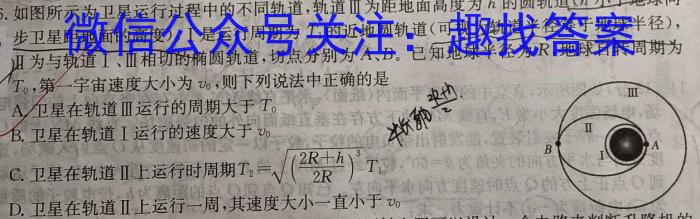 5.如图所示为卫星运行过程中的不同轨道,轨道Ⅲ为距地面高度为h的圆轨道(h小于地球同
步卫星
微信公众号关注：趣找答案
Ⅱ为与轨道Ⅰ、Ⅲ相切的椭圆轨道,切点分别为A、B。已知地球半径为R,地球自转周期为
T₀,第一宇宙速度大小为v₀,则下列说法中正确的是
A.卫星在轨道Ⅲ运行的周期大于T₀
B.卫星在轨道Ⅰ运行的速度大于v₀
C.卫星在轨道Ⅱ上运行时周期T₂=√((2R+h)/2R)³T₁
D.卫星在轨道Ⅱ上运行一周,其速度大小一直小于v₀
Ⅲ
Ⅱ
Ⅰ
B
A